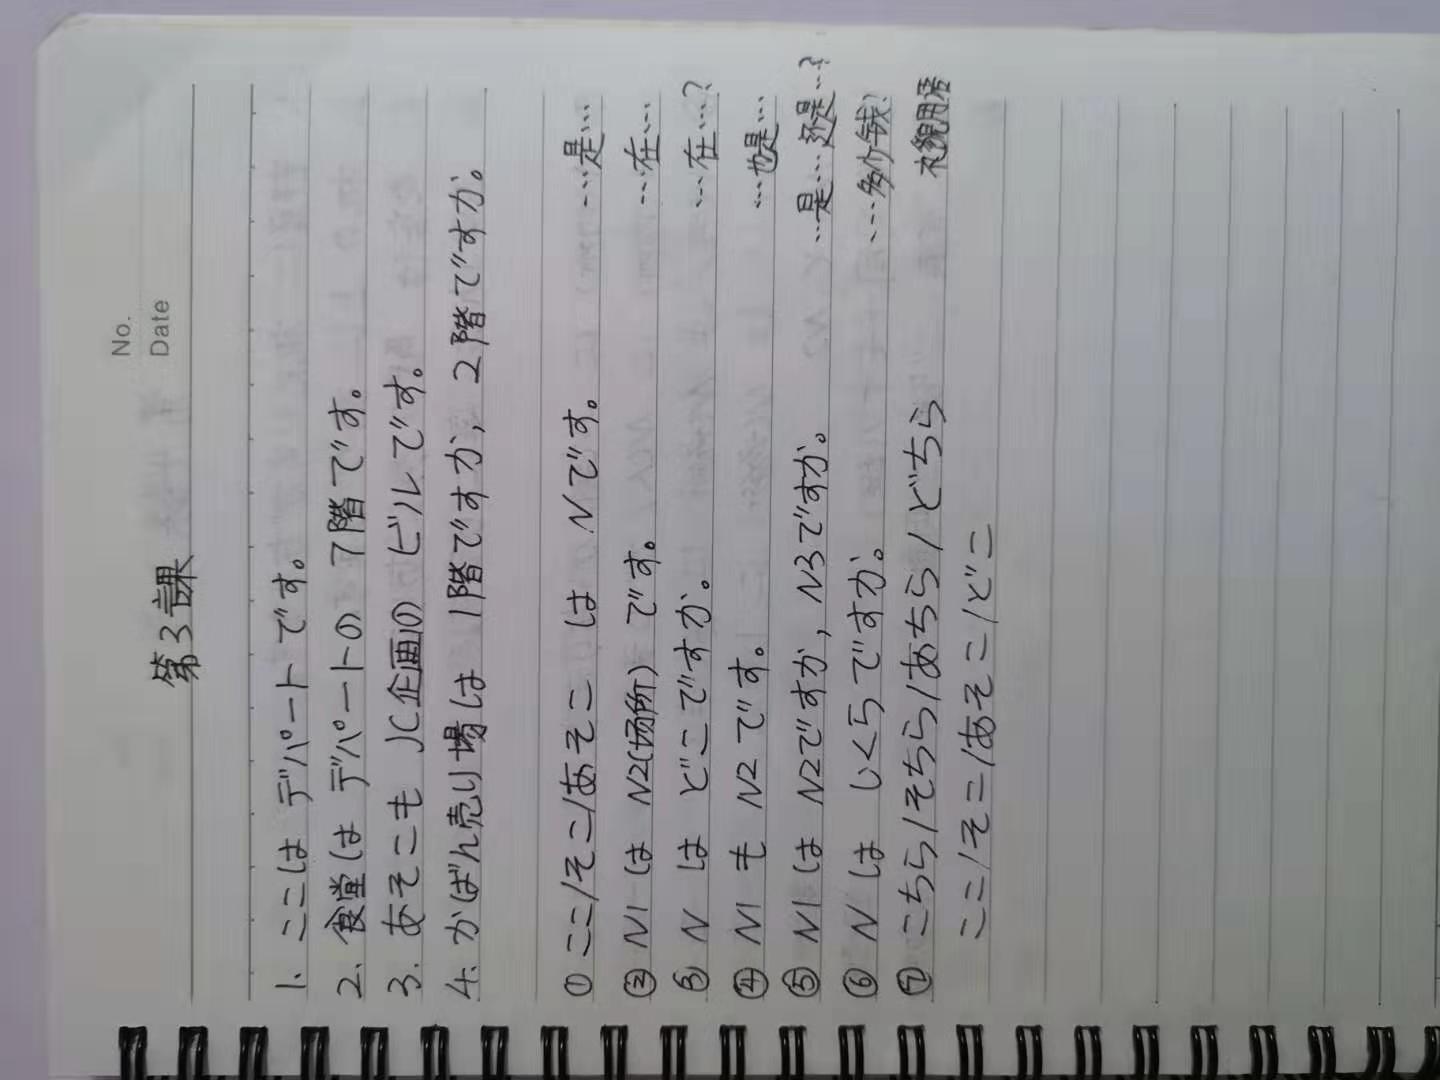 No.
Date
第3課
1. ここは デパートです。
2. 食堂は デパートの 7階です。
3. あそこも JC企画の ビルです。
4. かばん売り場は 1階ですか, 2階ですか。
① ここ/そこ/あそこ は Nです。 …是…
② N1は N2(场所) です。 …在…
③ N は どこですか。 …在…?
④ N1 も N2 です。 …也是…
⑤ N1は N2ですか, N3ですか。 …是…还是…?
⑥ N は いくらですか。 …多少钱?
⑦ こちら/そちら/あちら/どちら 礼貌用语
ここ/そこ/あそこ/どこ